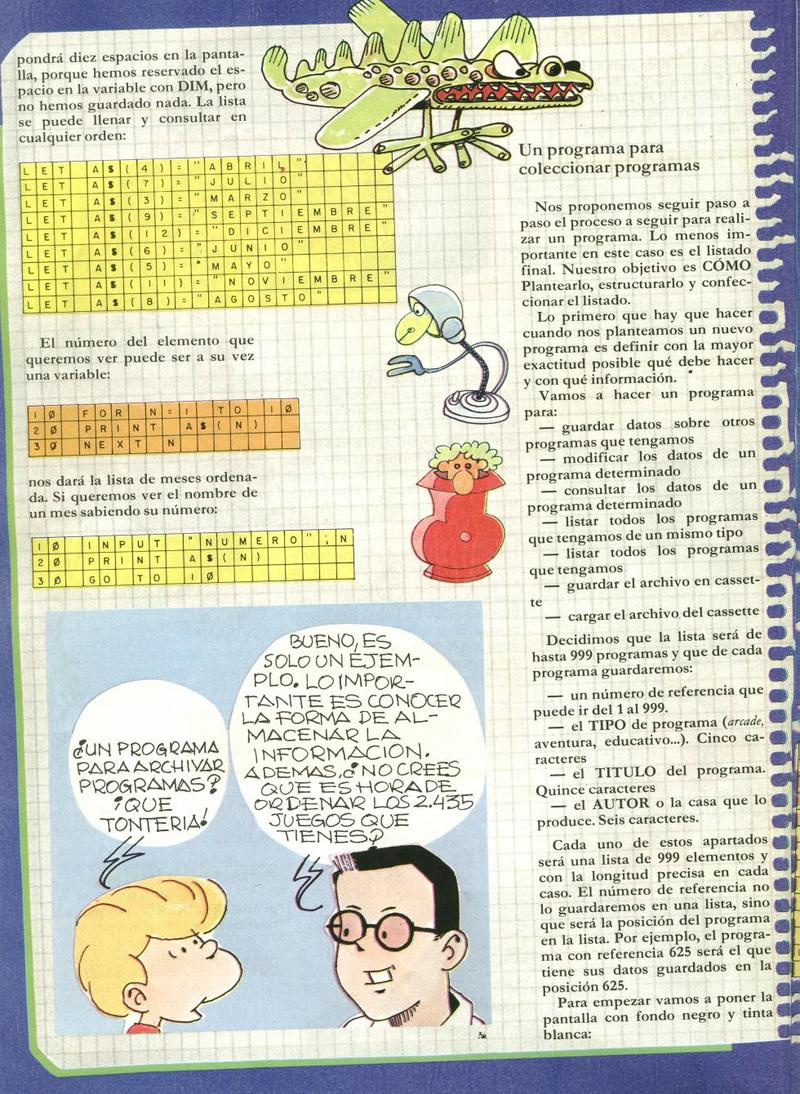 pondrá diez espacios en la panta-
lla, porque hemos reservado el es-
pacio en la variable con DIM, pero
no hemos guardado nada. La lista
se puede llenar y consultar en
cualquier orden:
LET A$(4)="ABRIL"
LET A$(7)="JULIO"
LET A$(3)="MARZO"
LET A$(9)="SEPTIEMBRE"
LET A$(12)="DICIEMBRE"
LET A$(6)="JUNIO"
LET A$(5)="MAYO"
LET A$(11)="NOVIEMBRE"
LET A$(8)="AGOSTO"
El número del elemento que
queremos ver puede ser a su vez
una variable:
10 FOR N=1 TO 10
20 PRINT A$(N)
30 NEXT N
nos dará la lista de meses ordena-
da. Si queremos ver el nombre de
un mes sabiendo su número:
10 INPUT "NUMERO";N
20 PRINT A$(N)
30 GO TO 10
¿UN PROGRAMA
PARA ARCHIVAR
PROGRAMAS?
¡QUE
TONTERIA!
BUENO, ES
SOLO UN EJEM-
PLO. LO IMPOR-
TANTE ES CONOCER
LA FORMA DE AL-
MACENAR LA
INFORMACION.
ADEMAS, ¿NO CREES
QUE ES HORA DE
ORDENAR LOS 2.435
JUEGOS QUE
TIENES?
Un programa para
coleccionar programas
Nos proponemos seguir paso a
paso el proceso a seguir para reali-
zar un programa. Lo menos im-
portante en este caso es el listado
final. Nuestro objetivo es CÓMO
Plantearlo, estructurarlo y confec-
cionar el listado.
Lo primero que hay que hacer
cuando nos planteamos un nuevo
programa es definir con la mayor
exactitud posible qué debe hacer
y con qué información.
Vamos a hacer un programa
para:
— guardar datos sobre otros
programas que tengamos
— modificar los datos de un
programa determinado
— consultar los datos de un
programa determinado
— listar todos los programas
que tengamos de un mismo tipo
— listar todos los programas
que tengamos
— guardar el archivo en casset-
te
— cargar el archivo del cassette
Decidimos que la lista será de
hasta 999 programas y que de cada
programa guardaremos:
— un número de referencia que
puede ir del 1 al 999.
— el TIPO de programa (arcade,
aventura, educativo...). Cinco ca-
racteres
— el TITULO del programa.
Quince caracteres
— el AUTOR o la casa que lo
produce. Seis caracteres.
Cada uno de estos apartados
será una lista de 999 elementos y
con la longitud precisa en cada
caso. El número de referencia no
lo guardaremos en una lista, sino
que será la posición del programa
en la lista. Por ejemplo, el progra-
ma con referencia 625 será el que
tiene sus datos guardados en la
posición 625.
Para empezar vamos a poner la
pantalla con fondo negro y tinta
blanca: